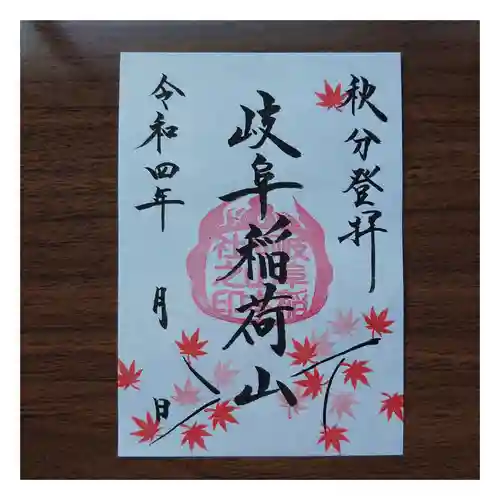 秋分登拝
岐阜稲荷山
令和四年
月
日